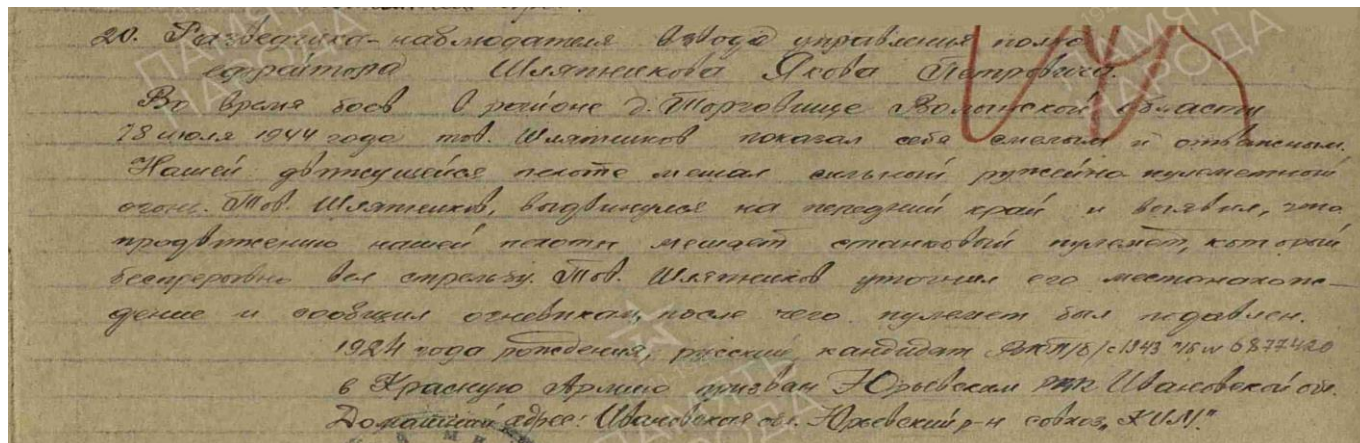 20. Разведчика-наблюдателя взвода управления полка
ефрейтора Шляпникова Якова Петровича.
Во время боев в районе д. Торговище Волынской области
18 июля 1944 года тов. Шляпников показал себя смелым и отважным.
Нашей движущейся пехоте мешал сильный ружейно пулеметный
огонь. Тов. Шляпников, выдвинулся на передний край и выявил, что
продвижению нашей пехоты мешает станковый пулемет, который
беспрерывно вел стрельбу. Тов. Шляпников уточнил его местонахож-
дение и сообщил огневикам, после чего пулемет был подавлен.
1924 года рождения, русский кандидат ВКП/б/ с 1943 п/б № 6877420
в Красную Армию призван Юрьевским РВК Ивановской обл.
Домашний адрес: Ивановская обл. Юрьевский р-н совхоз „КИМ".
ПАМЯТЬ
НАРОДА
ПАМЯТЬ
НАРОДА